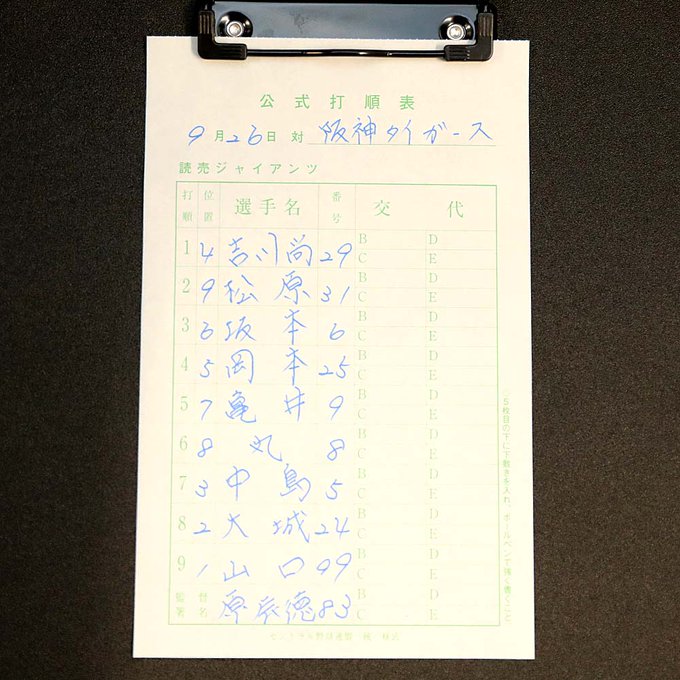 公式打順表
9月26日 対 阪神タイガース
読売ジャイアンツ
打順 位置 選手名 番号 交代
1 4 吉川尚 29 B C D E
2 9 松原 31 B C D E
3 6 坂本 6 B C D E
4 5 岡本 25 B C D E
5 7 亀井 9 B C D E
6 8 丸 8 B C D E
7 3 中島 5 B C D E
8 2 大城 24 B C D E
9 1 山口 99 B C D E
監督署名 原辰徳 83 B C D E
5枚目の下に下敷きを入れ、ボールペンで強く書くこと